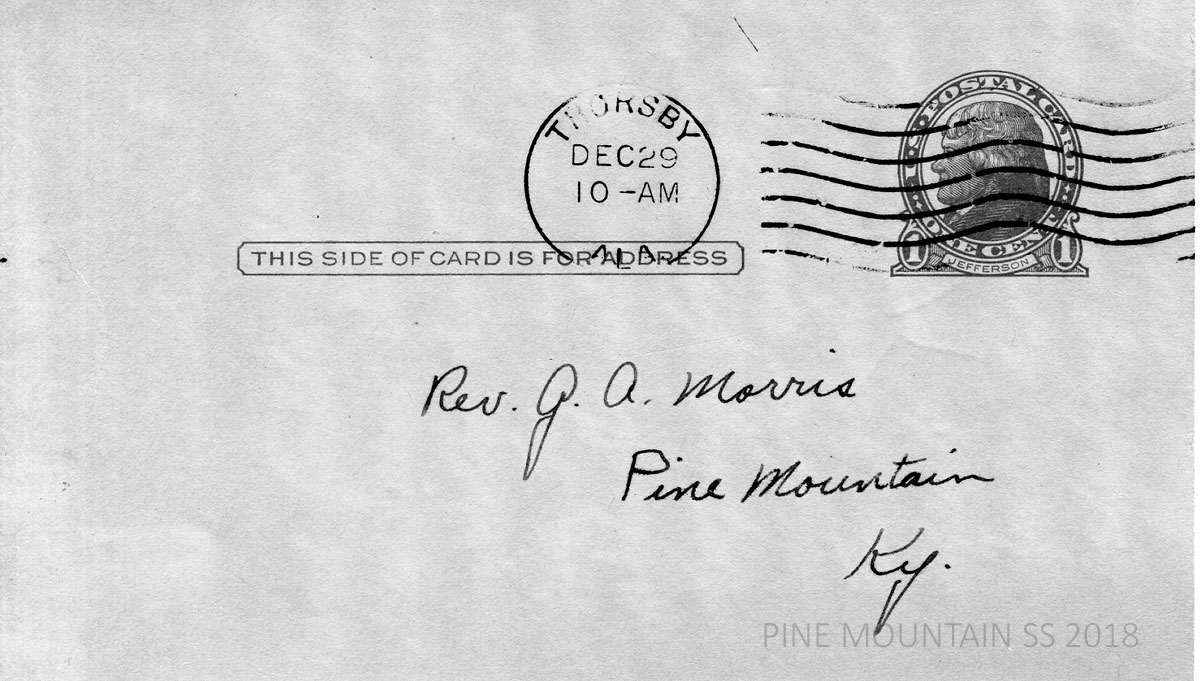 THORSBY
DEC 29
10-AM
ALA
U.S. POSTAL CARD
ONE CENT
1 JEFFERSON 1
THIS SIDE OF CARD IS FOR ADDRESS
Rev. G. A. Morris
Pine Mountain
Ky.
PINE MOUNTAIN SS 2018